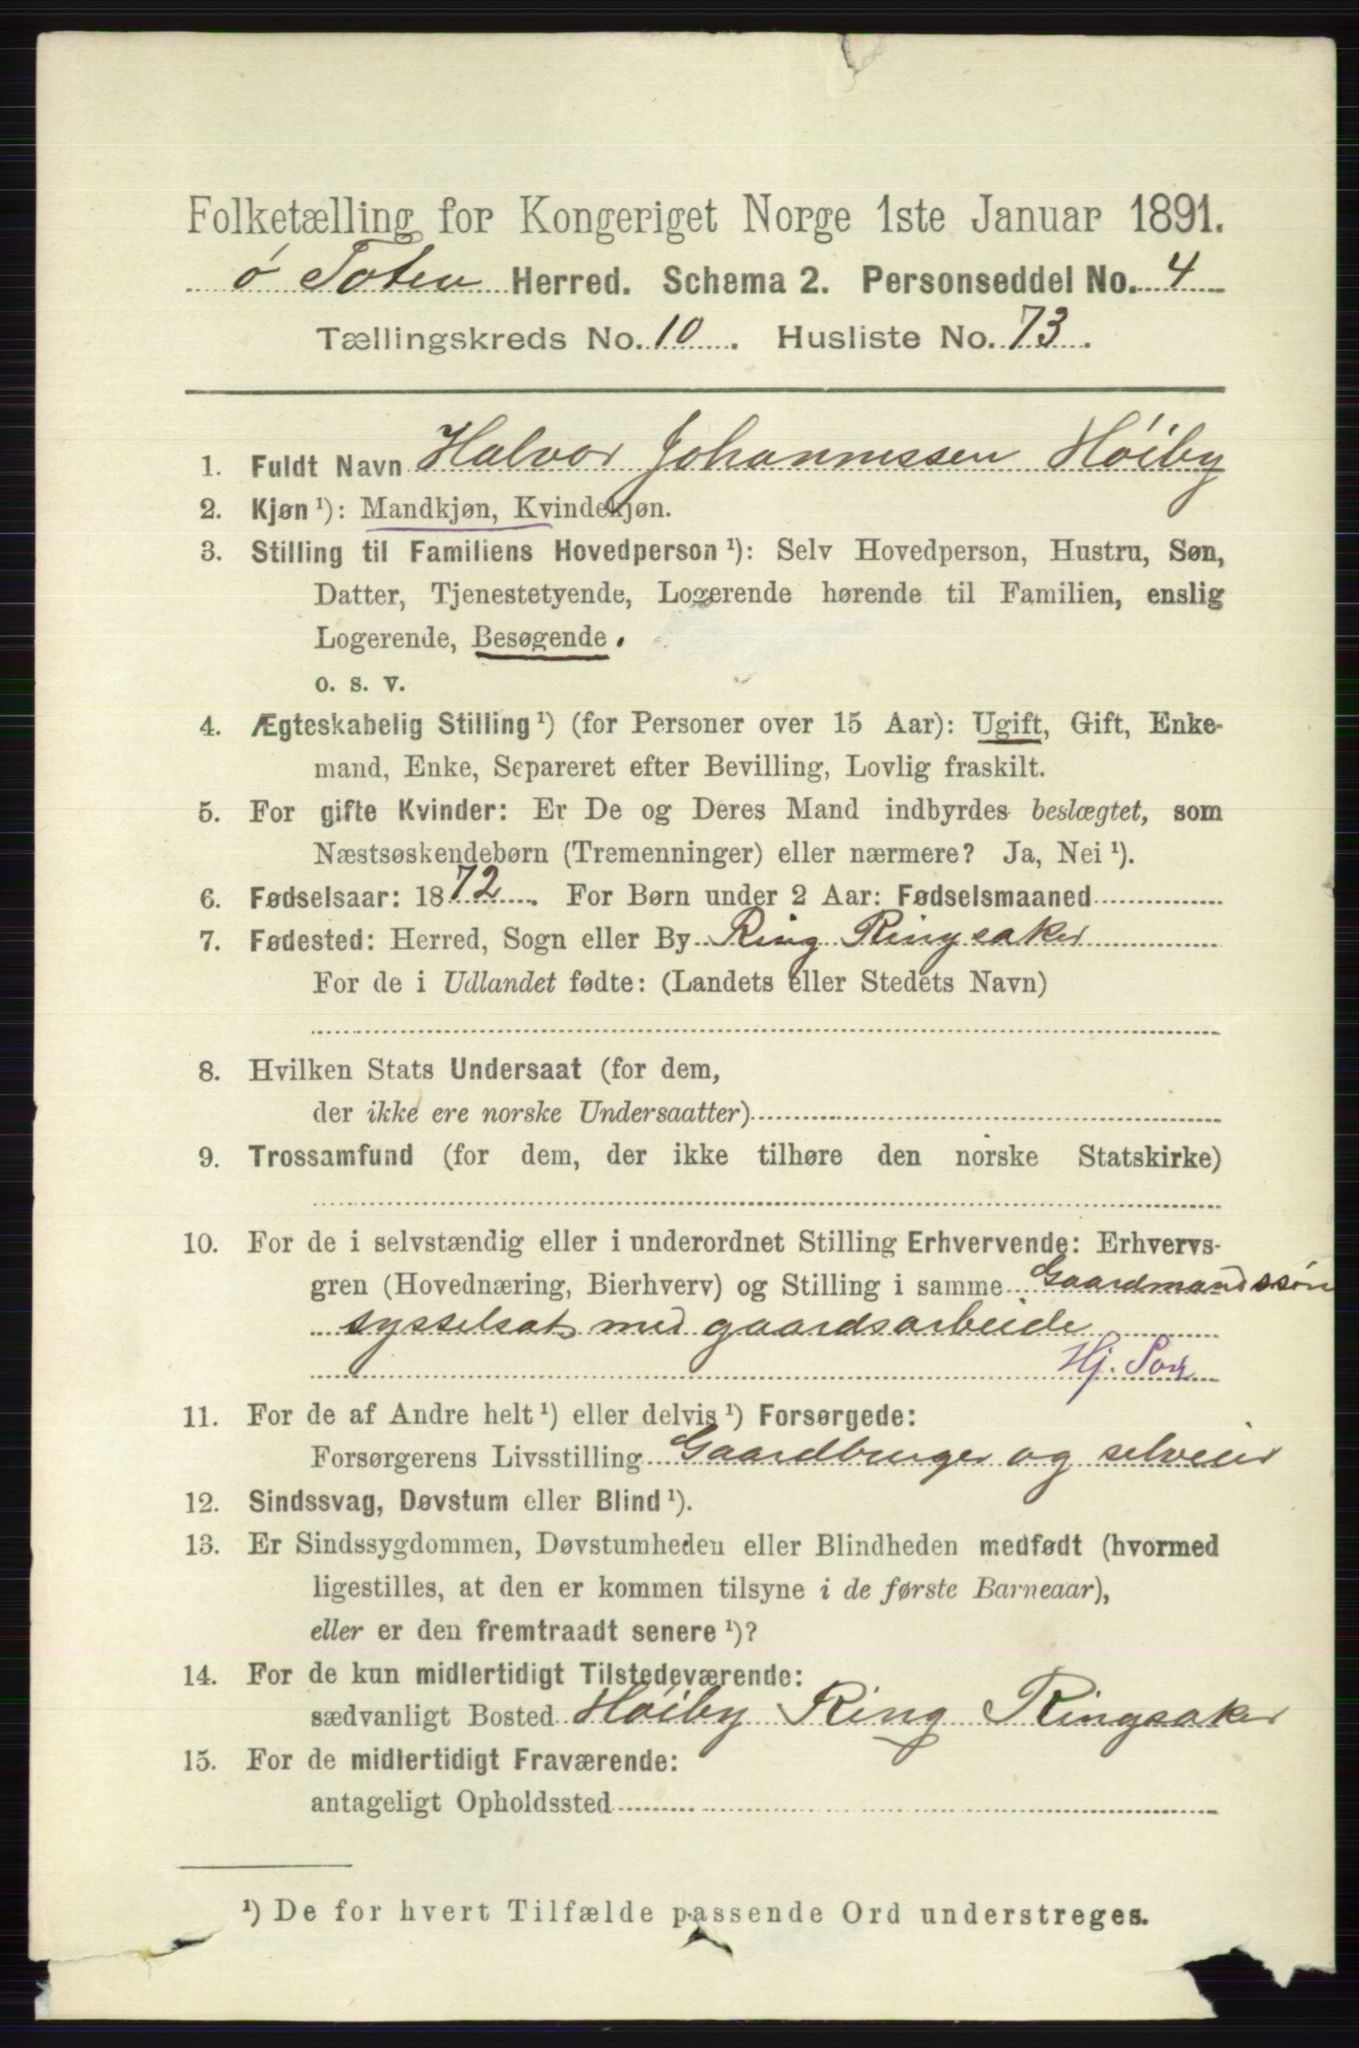 Folketælling for Kongeriget Norge 1ste Januar 1891.
Ø Toten Herred. Schema 2. Personseddel No. 4
Tællingskreds No. 10. Husliste No. 73.
1. Fuldt Navn Halvor Johannessen Höiby
2. Kjøn ¹): Mandkjøn, Kvindekjøn.
3. Stilling til Familiens Hovedperson ¹): Selv Hovedperson, Hustru, Søn,
Datter, Tjenestetyende, Logerende hørende til Familien, enslig
Logerende, Besøgende.
o. s. v.
4. Ægteskabelig Stilling ¹) (for Personer over 15 Aar): Ugift, Gift, Enke-
mand, Enke, Separeret efter Bevilling, Lovlig fraskilt.
5. For gifte Kvinder: Er De og Deres Mand indbyrdes beslægtet, som
Næstsøskendebørn (Tremenninger) eller nærmere? Ja, Nei ¹).
6. Fødselsaar: 1872. For Børn under 2 Aar: Fødselsmaaned
7. Fødested: Herred, Sogn eller By Ring Ringsaker
For de i Udlandet fødte: (Landets eller Stedets Navn)
8. Hvilken Stats Undersaat (for dem,
der ikke ere norske Undersaatter)
9. Trossamfund (for dem, der ikke tilhøre den norske Statskirke)
10. For de i selvstændig eller i underordnet Stilling Erhvervende: Erhvervs-
gren (Hovednæring, Bierhverv) og Stilling i samme Gaardmandssön
sysselsat med gaardsarbeide
Hj. Søn
11. For de af Andre helt ¹) eller delvis ¹) Forsørgede:
Forsørgerens Livsstilling Gaardbruger og selveier
12. Sindssvag, Døvstum eller Blind ¹).
13. Er Sindssygdommen, Døvstumheden eller Blindheden medfødt (hvormed
ligestilles, at den er kommen tilsyne i de første Barneaar),
eller er den fremtraadt senere ¹)?
14. For de kun midlertidigt Tilstedeværende:
sædvanligt Bosted Höiby Ring Ringsaker
15. For de midlertidigt Fraværende:
antageligt Opholdssted
¹) De for hvert Tilfælde passende Ord understreges.